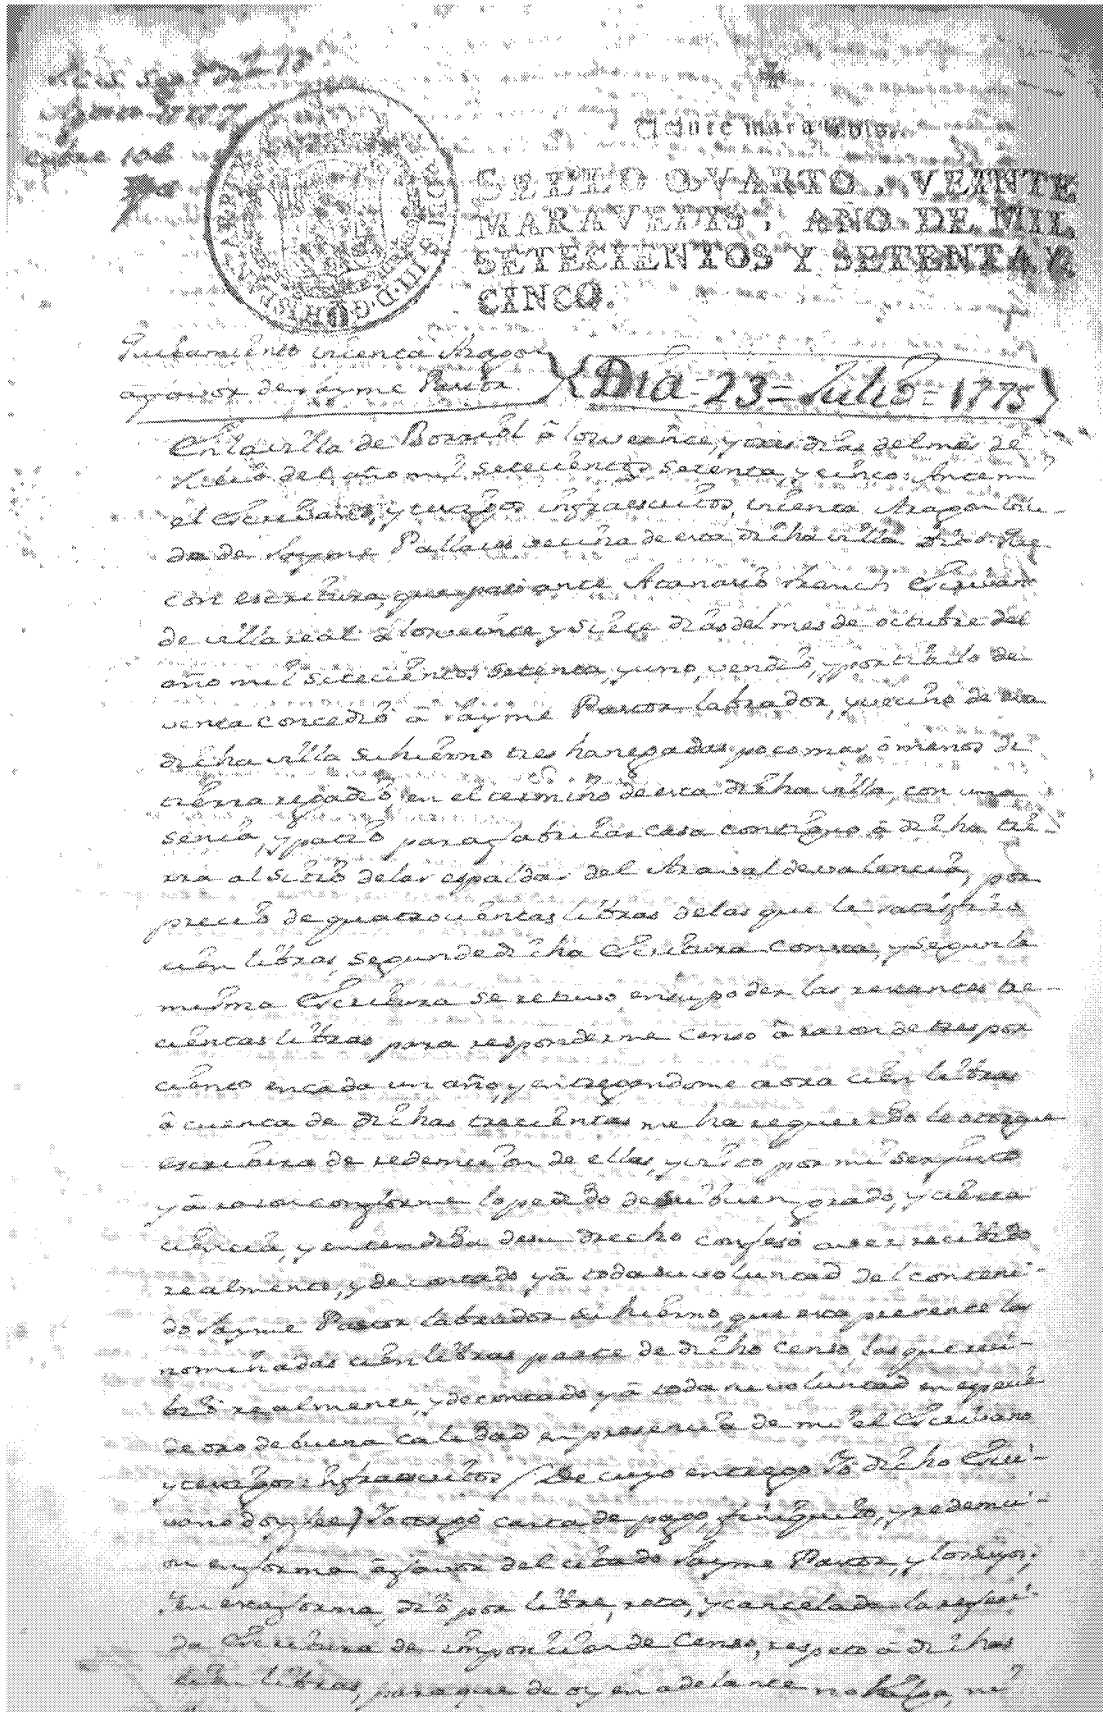 Veinte maravedis.
SELLO QVARTO, VEINTE
MARAVEDIS, AÑO DE MIL
SETECIENTOS Y SETENTA Y
CINCO.
Quitamiento vicenta Aragon
â favor de Jayme Pastor
Dia = 23 = Julio = 1775
En la villa de Borriol â los veinte, y tres dias del mes de
Julio del año mil setecientos setenta, y cinco: Antemi
el Escrivano, y testigos infraescritos, vicenta Aragon viu-
da de Jayme Pallares vecina de esta dicha villa Dixo: Que
con escritura, que passo ante Atanasio Franch Escrivano
de villareal â los veinte, y siete dias del mes de octubre del
año mil setecientos setenta, y uno, vendio, y por titulo de
venta concedio â Jayme Pastor labrador, y vecino de esta
dicha villa su hierno tres hanegadas poco mas, ô menos de
tierra regadio, en el termino de esta dicha villa, con una
senia, y patio para fabricar casa contiguo â dicha tie-
rra al sitio delas espaldas del Araval de valencia, por
precio de quatrocientas libras delas que le satisfizo
cien libras, segun de dicha Escritura consta, y segun la
misma Escritura se retuvo en su poder las restantes tre-
cientas libras para responderme censo â razon de tres por
ciento en cada un año, y entregandome aora cien libras
â cuenta de dichas trecientas me ha requerido le otorgue
escritura de redemcion de ellas, y visto por mi ser justo
y â razon conforme lo pedido de su buen grado, y cierta
ciencia, y entendida de su drecho confesó aver recibido
realmente, y de contado, y â toda su voluntad del conteni-
do Jayme Pastor labrador su hierno, que esta presente las
nominadas cien libras parte de dicho censo, las que reci-
bió realmente, y de contado y â toda su voluntad en especie
de oro de buena calidad en presencia de mi el Escrivano
y testigos infraescritos (De cuyo entrego Yo dicho Escri-
vano doy fee) Y otorgó carta de pago, finiquito, y redemci-
on en forma â favor del citado Jayme Pastor, y los suyos,
Y en esta forma, dió por libre, rota, y cancelada la referi-
da Escritura de imposicion de Censo, respeto â dichas
cien libras, para que de oy en adelante no valga, ni